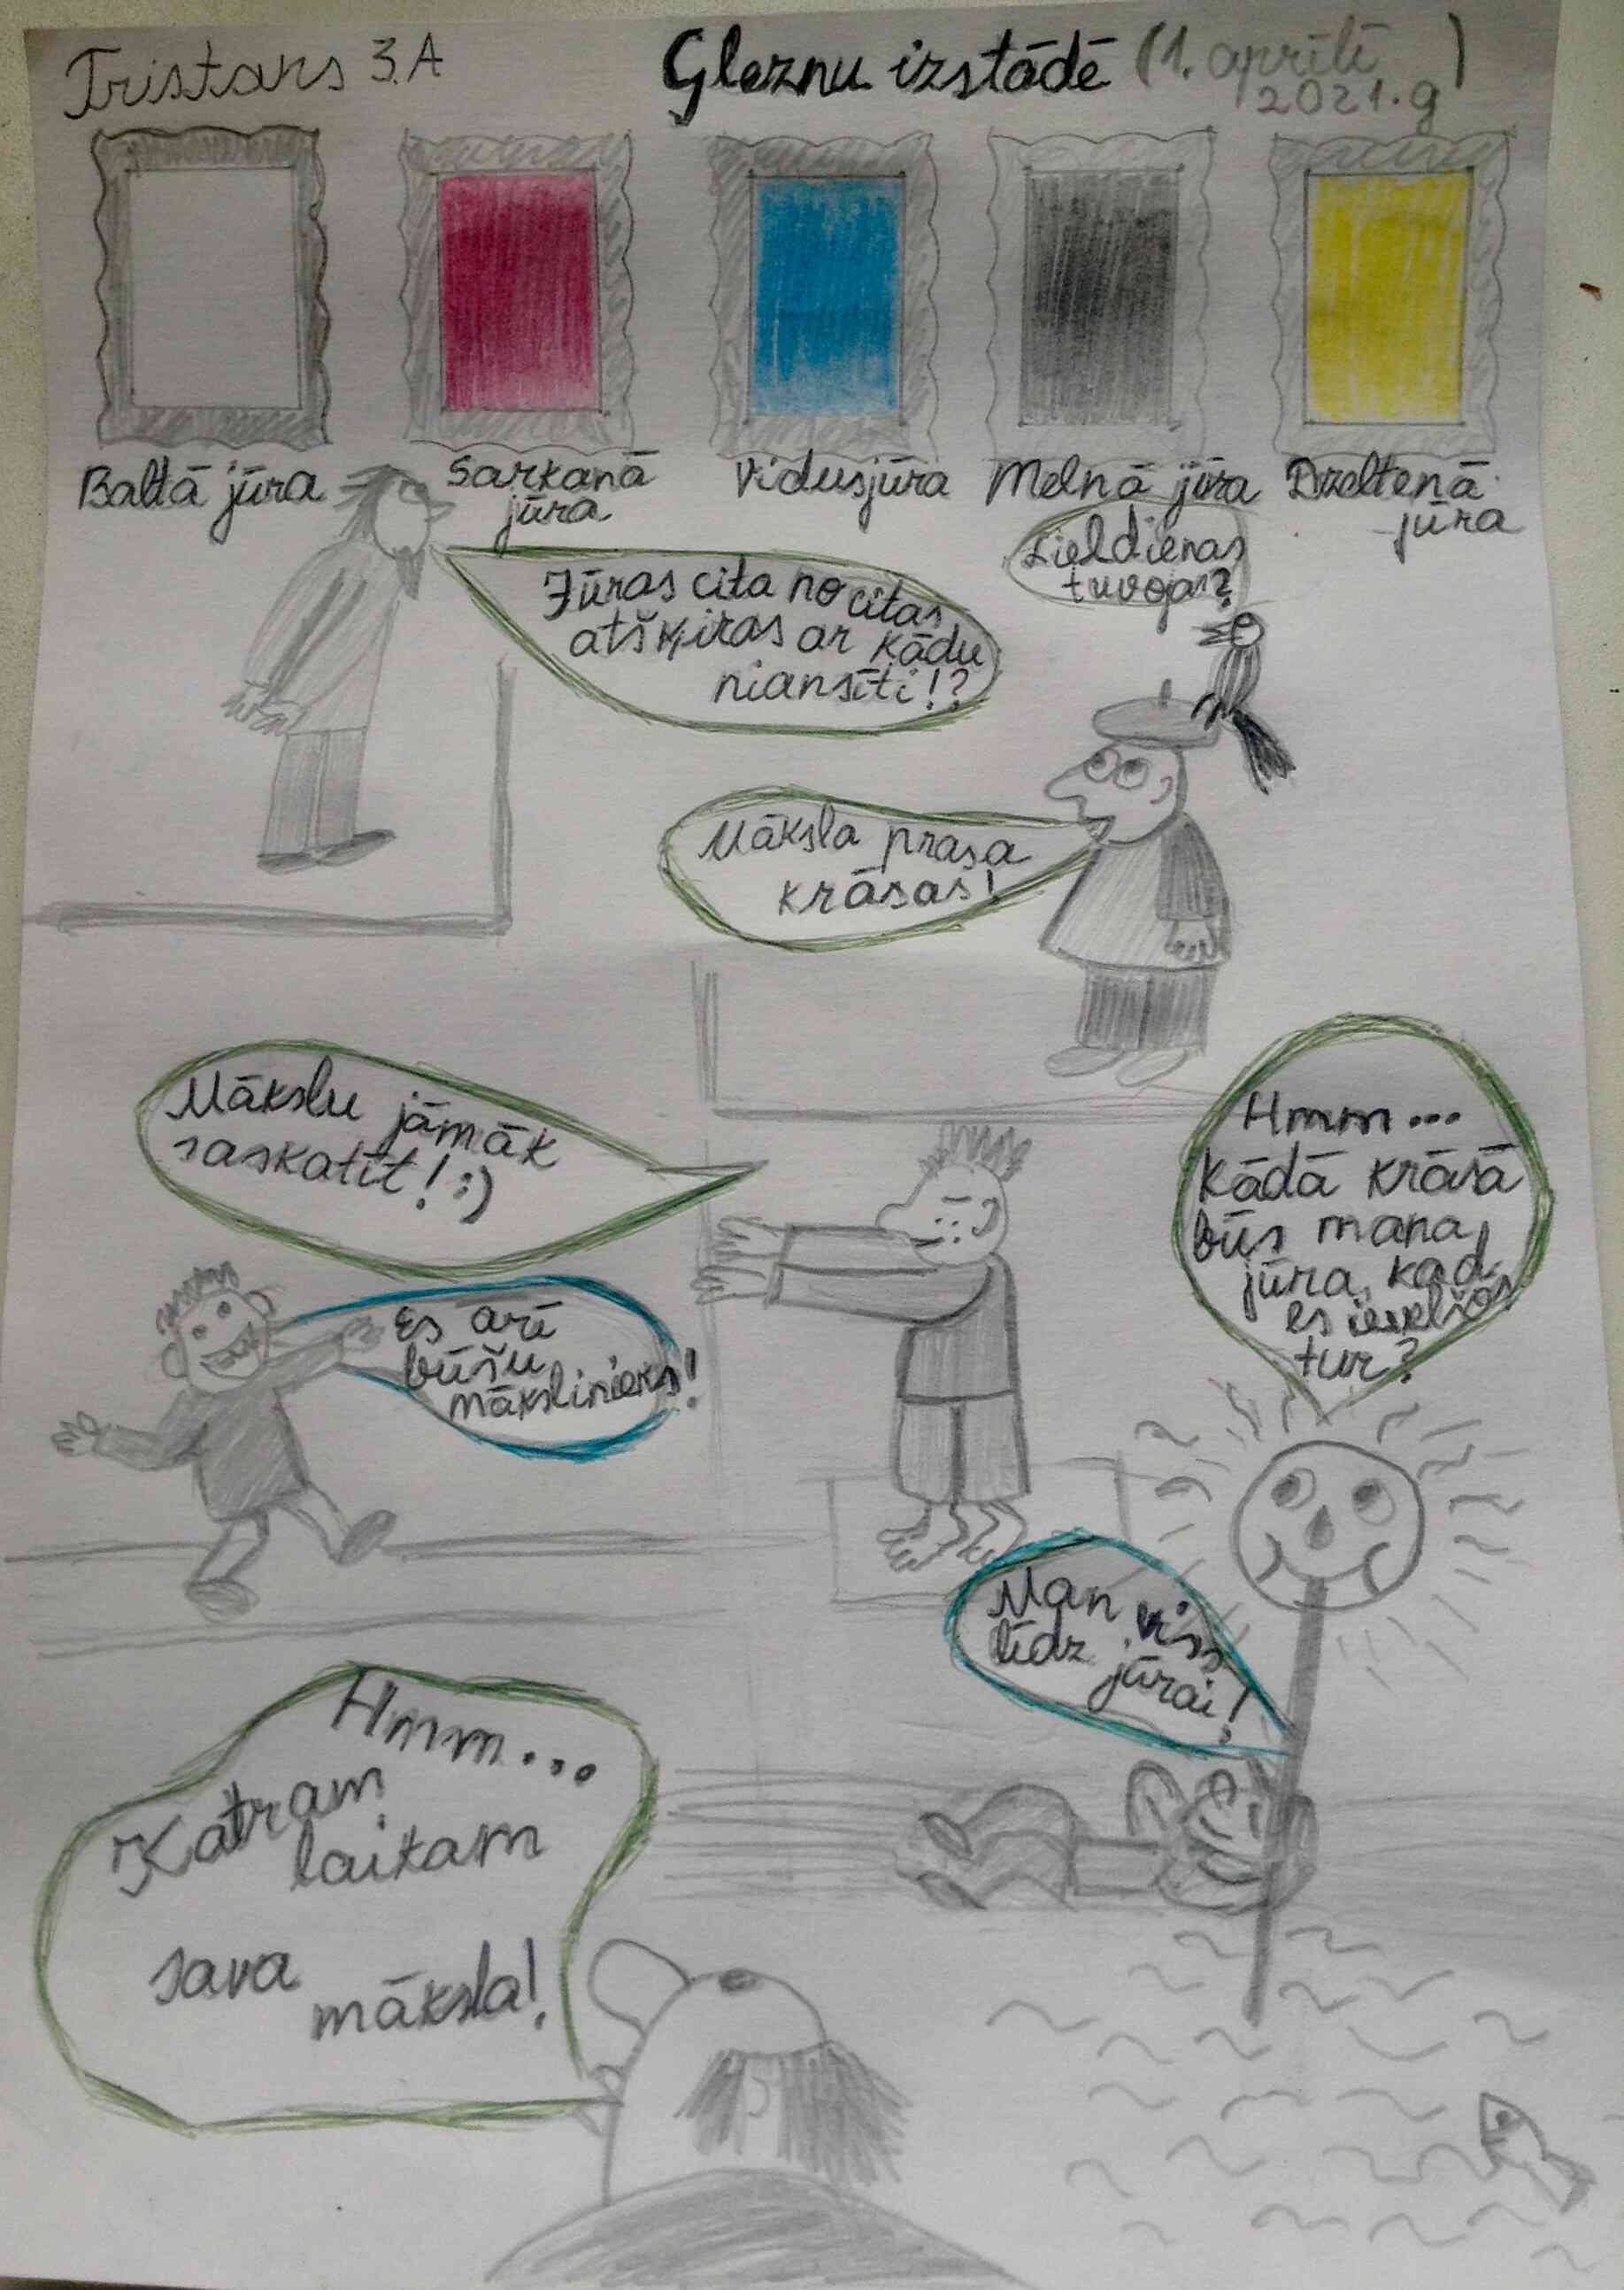 Tristans 3.A
Gleznu izstādē (1. aprīlī
2021.g)
Baltā jūra
Sarkanā
jūra
Vidusjūra
Melnā jūra
Dzeltenā
jūra
Lieldienas
tuvojas?
Jūras cita no citas
atšķiras ar kādu
niansīti!?
Māksla prasa
krāsas!
Mākslu jāmāk
saskatīt! :)
Es arī
būšu
mākslinieks!
Hmm...
Kādā krāsā
būs mana
jūra, kad
es
tur?
Man viss
līdz jūrai!
Hmm...
Katram
laikam
sava
māksla!